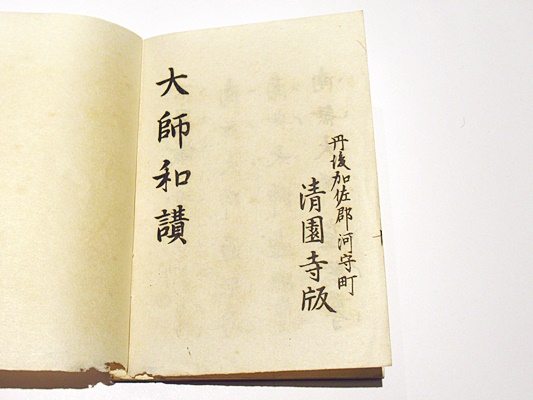 丹後加佐郡河守町
清園寺版
大師和讃